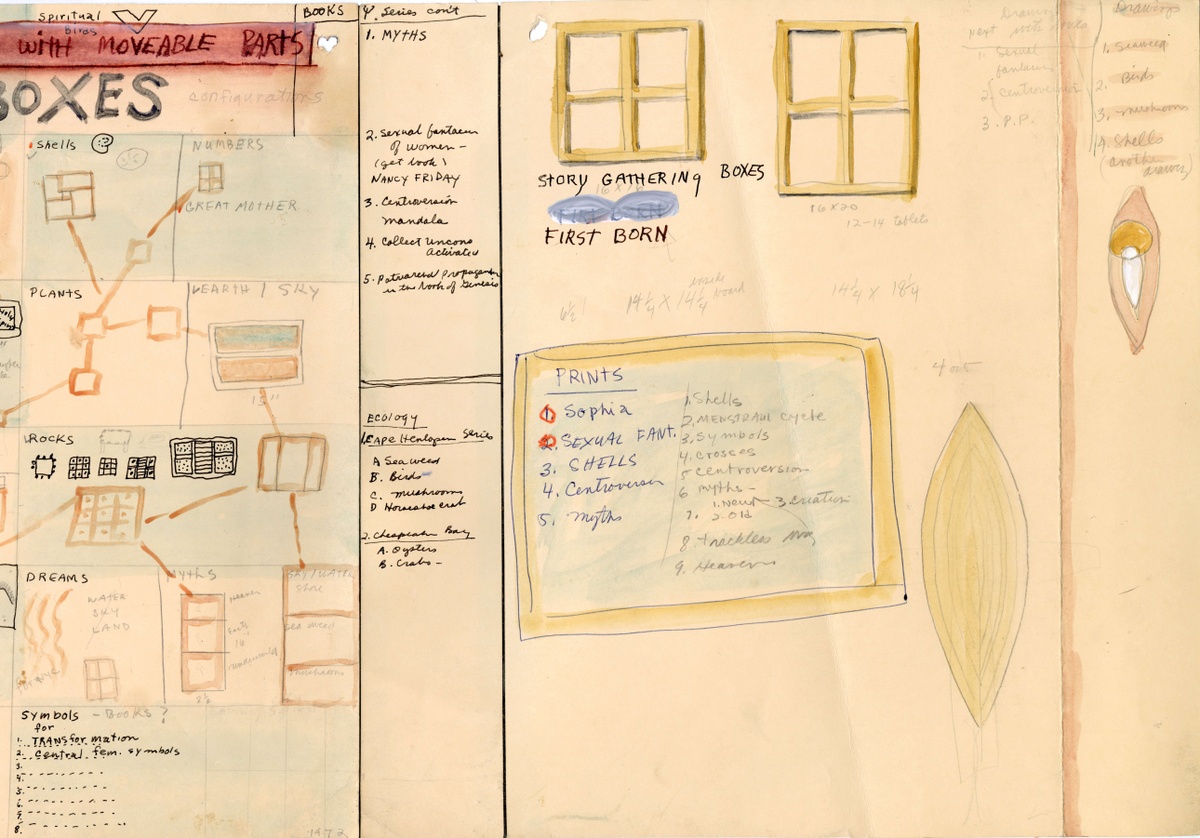 spiritual
Birds
BOOKS
with MOVEABLE PARTS
BOXES
configurations
Shells
NUMBERS
GREAT MOTHER
PLANTS
EARTH / SKY
15"
ROCKS
DREAMS
WATER
SKY
LAND
Myths
Heaven
Earth
14
Underworld
8½
SKY/WATER
Shore
Sea weed
mushrooms
Symbols - Books?
for
1. TRANSformation
2. Central fem. symbols
3.
4.
5.
6.
7.
8.
1972
4. Series con't
1. MYTHS
2. Sexual fantacies
of women -
(get book)
NANCY FRIDAY
3. Centroversion
mandala
4. Collect Uncons
Activated
5. Patriarchal Propaganda
in the book of Genesis
ECOLOGY
1. Cape Henlopen Series
A Sea weed
B. Birds
C. mushrooms
D Horseshoe crab
2. Cheapeake Bay
A. Oysters
B. Crabs -
STORY GATHERING BOXES
16 x 16
FIRST BORN
FIRST BORN
16 x 20
12-14 tablets
6½"
14¼ x 14¼
inside
board
14¼ x 18¼
PRINTS
1. Sophia
2. SEXUAL FANT.
3. SHELLS
4. Centroversion
5. Myths
1. Shells
2. MENSTRAUL cycle
3. Symbols
4. Crosses
5 Centroversion
6 myths -
1. New 3 creation
7. 2. Old
8. trackless way
9. Heavens
4 oz
Drawings
next
1. Sexual
fantacies
2. Centroversion
3. P.P.
Drawings
1. Seaweed
2. Birds
3. mushrooms
4. Shells
(another
drawer)